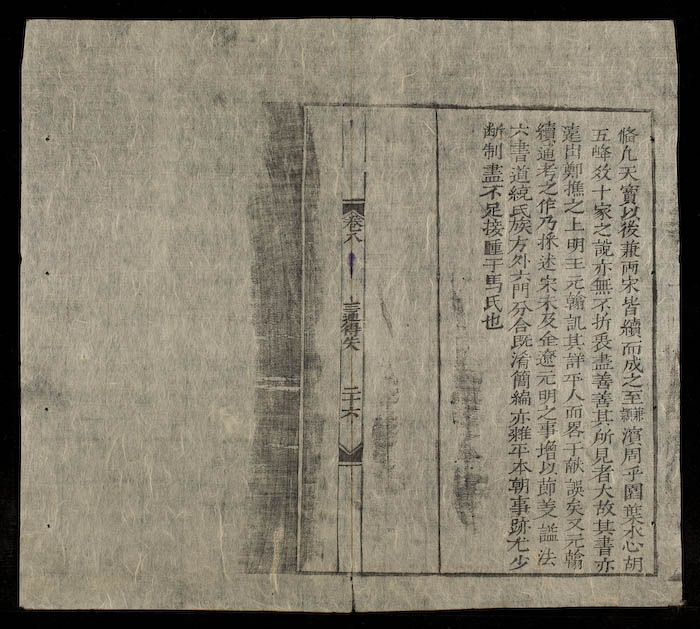 脩凡天寳以後兼两宋皆續而成之至濵周乎園葉水心胡
五峰效十家之說亦無不折衷盡善善其所見者大故其書亦
遠出鄭樵之上明王元翰訊其詳平人而畧于献誤矣又元翰
續通考之作乃採述宋末及金遼元明之事增以節義謚法
六書道統氏族方外六門分合既淆簡編亦雜平本朝事跡尤少
断制盡不足接踵于馬氏也
卷八
三通得失
二十六